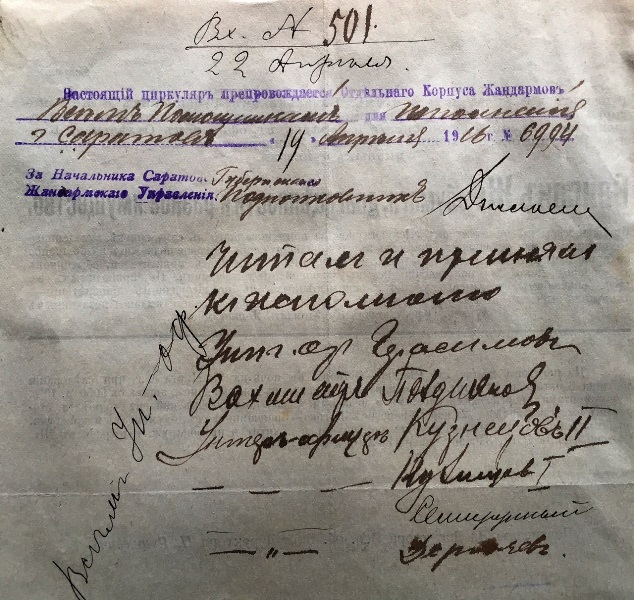 Вх. № 501.
22 Апреля.
Настоящій циркуляръ препровождается Отдѣльнаго Корпуса Жандармовъ
Всѣмъ Помощникамъ для
г. Саратовъ « 19 » Апрѣля 1916 г. № 6994
За Начальника Саратов. Губернскаго
Жандармскаго Управленія, Подполковникъ
Читалъ и принялъ
къ исполненію
Унт. оф. Герасимовъ
Вахмистръ
Унтеръ-офицеръ Кузнецовъ II
— — — Кузнецов I
— „ —
Всѣмъ Ун.-оф.